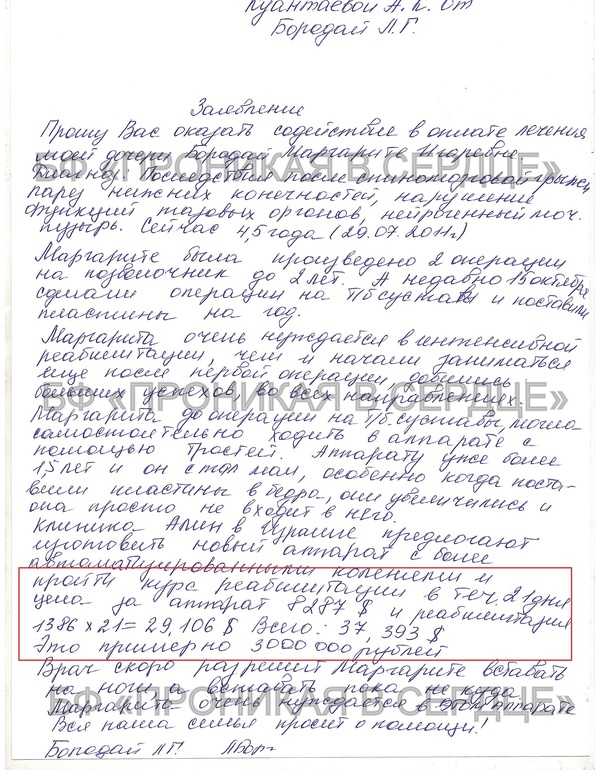 Куантаевой А. К. от
Бородай Л.Г.
Заявление
Прошу Вас оказать содействие в оплате лечения
моей дочери Бородай Маргарите Игоревне
БФ «ПРОНИКАЯ В СЕРДЦЕ»
Диагноз: Последствия после спиномозговой грыжи,
парез нижних конечностей, нарушение
функций тазовых органов, нейрогенный моч.
пузырь. Сейчас 4,5 года (29.07.2011г)
Маргарите была произведено 2 операции
на позвоночник до 2 лет. А недавно 15 октября
сделали операции на т/б суставы и поставили
пластины на год.
Маргарита очень нуждается в интенсивной
реабилитации, чем и начали заниматься
еще после первой операции, добились
больших успехов во всех направлениях.
БФ «ПРОНИКАЯ В СЕРДЦЕ»
Маргарита до операции на т/б. суставы, могла
самостоятельно ходить в аппарате с
помощью тростей. Аппарату уже более
1,5 лет и он стал мал, особенно когда поста-
вили пластины в бедра, они увеличились и
она просто не входит в него.
Клиника Алин в Израиле предлогают
изготовить новый аппарат с более
автоматизированными коленями и
пройти курс реабилитации в теч. 21 дня
цена за аппарат 8287 $ и реабилитация
1386 х 21 = 29,106 $ Всего: 37,393 $
Это примерно 3000 000 рублей
Врач скоро разрешит Маргарите вставать
на ноги, а вставать пока не куда.
БФ «ПРОНИКАЯ В СЕРДЦЕ»
Маргарита очень нуждается в этом аппарате
Вся наша семья просит о помощи!
Бородай Л.Г.